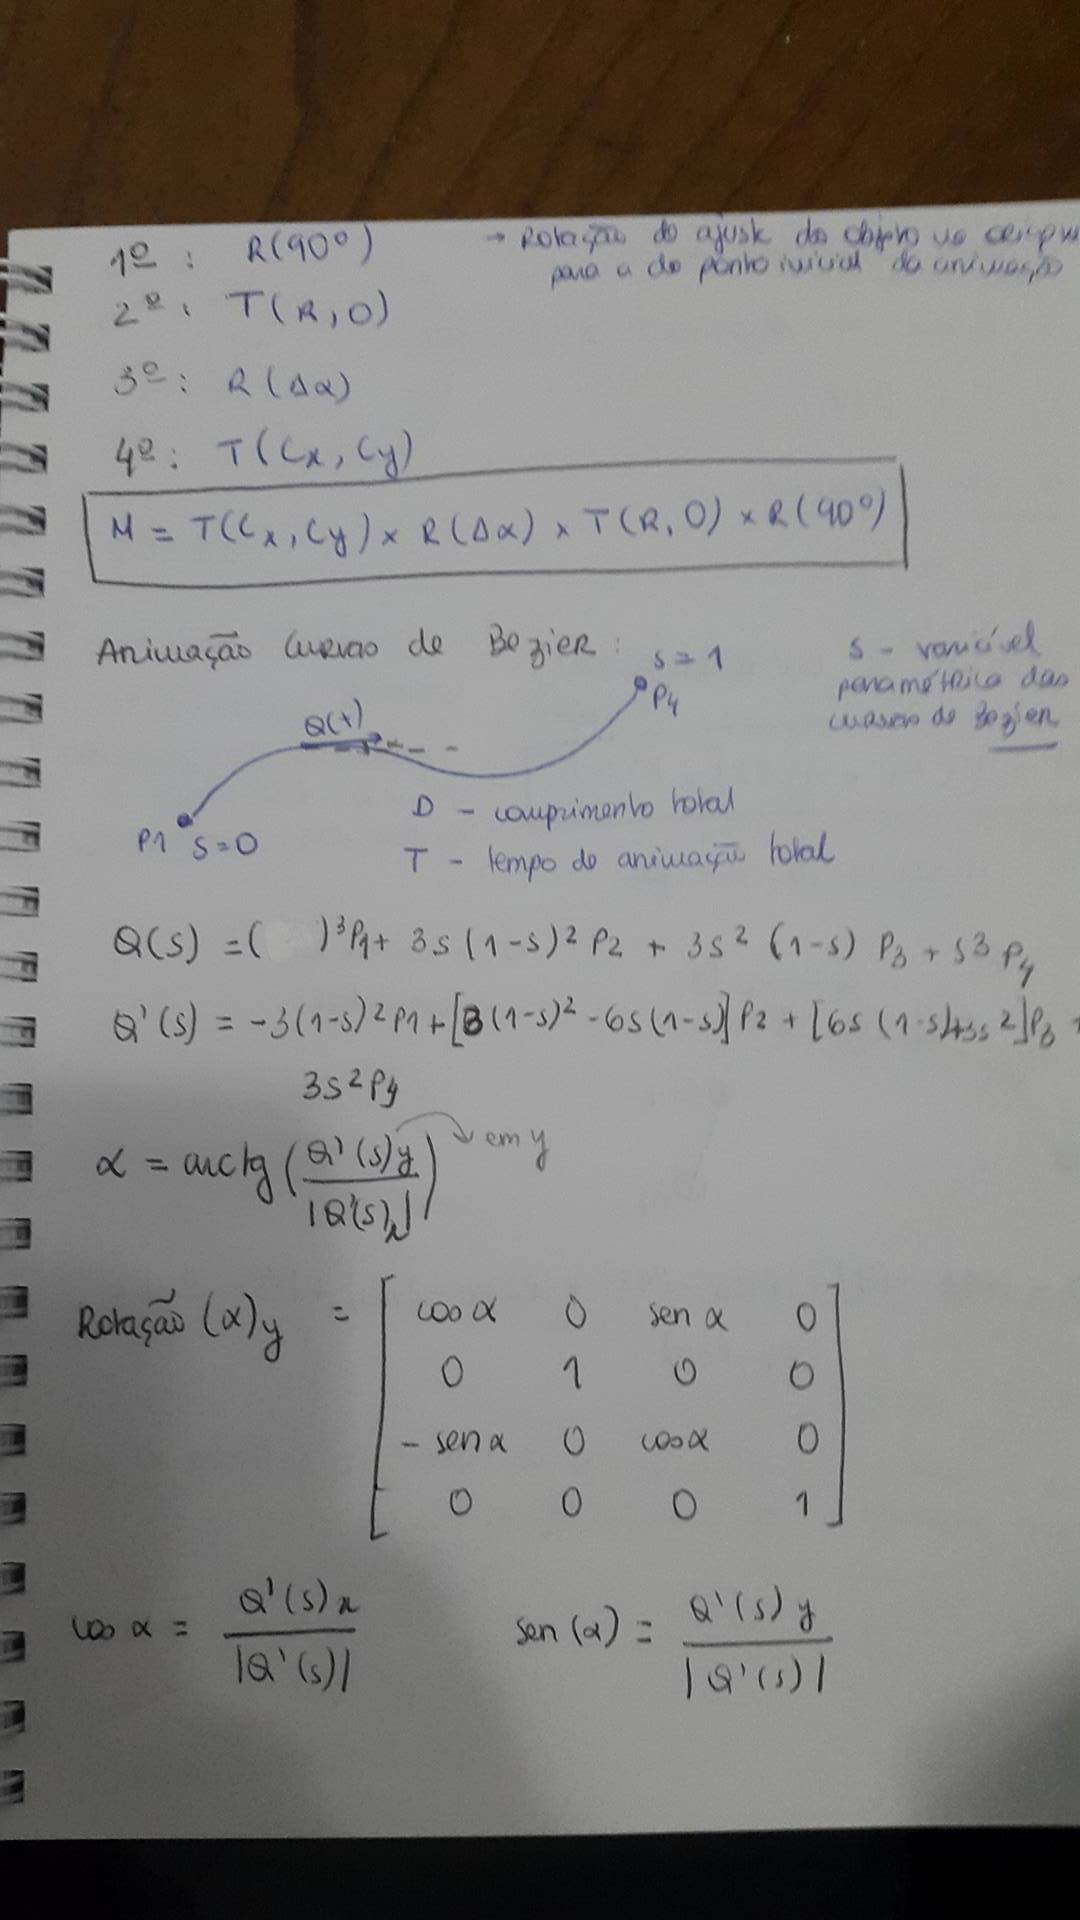 1º : R(90º) → Rotação do ajuste do objeto na origem
para a do ponto inicial da animação
2º : T(R, 0)
3º : R(Δα)
4º : T(Cx, Cy)
M = T(Cx, Cy) × R(Δα) × T(R, 0) × R(90º)
Animação Curvas de Bezier :
s = 1
P4
Q(t)
P1 s=0
s - variável
paramétrica das
curvas de Bezier
D - comprimento total
T - tempo de animação total
Q(s) = ( )³P1 + 3s(1-s)²P2 + 3s²(1-s) P3 + s³P4
Q'(s) = -3(1-s)²P1 + [3(1-s)² - 6s(1-s)]P2 + [6s(1-s)+3s²]P3 +
3s²P4
α = arctg(Q'(s)y / |Q'(s)x|) → em y
Rotação (α)y = [ cos α 0 sen α 0
0 1 0 0
- sen α 0 cos α 0
0 0 0 1 ]
cos α = Q'(s)x / |Q'(s)| sen(α) = Q'(s)y / |Q'(s)|